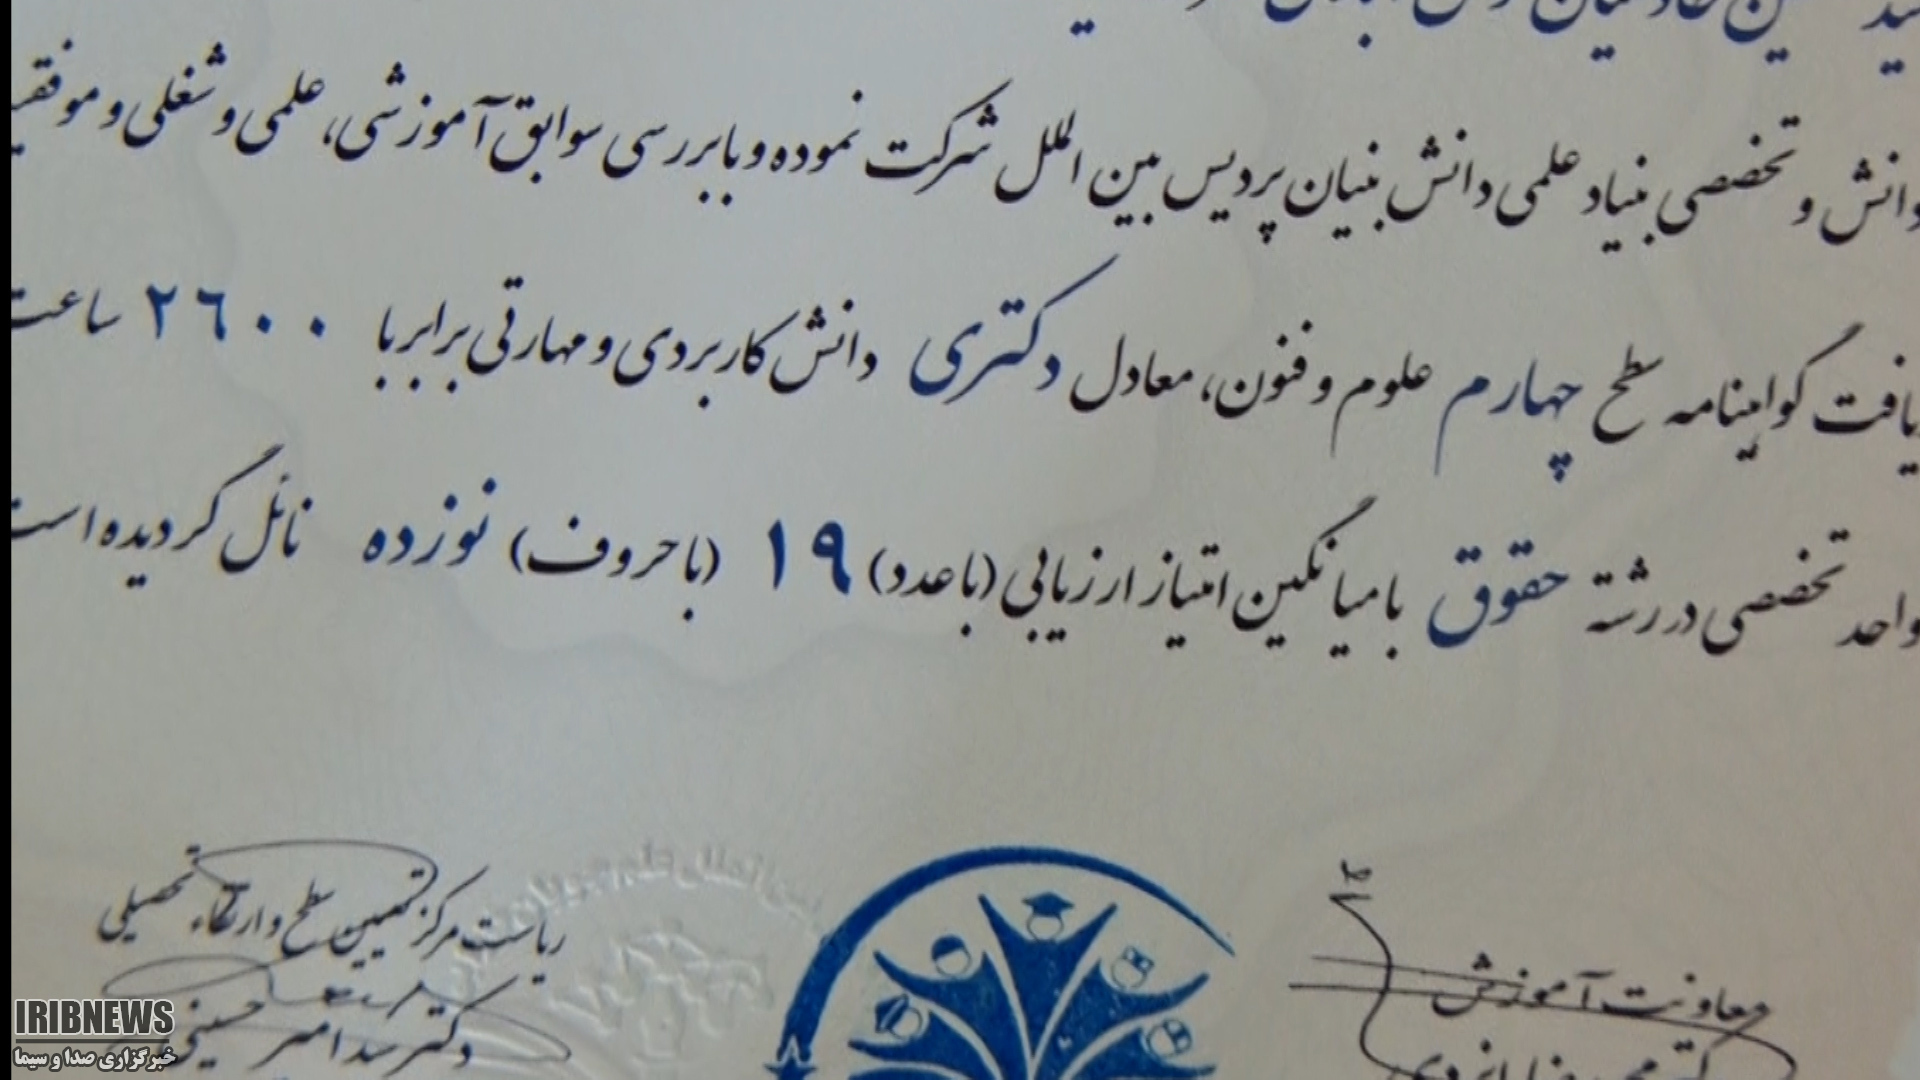 دانش و تخصصی بنیاد علمی دانش بنیان پردیس بین الملل شرکت نموده و با بررسی سوابق آموزشی، علمی و شغلی و موفقی
یافت گواهینامه سطح چهارم علوم و فنون، معادل دکتری دانش کاربردی و مهارتی برابر با ۲٦۰۰ ساعت
واحد تخصصی در رشته حقوق با میانگین امتیاز ارزیابی (با عدد) ۱۹ (با حروف) نوزده نائل گردیده است
معاونت آموزش
ریاست مرکز تعیین سطح و ارتقاء تحصیلی
دکتر سید امیر حسینی
IRIBNEWS
خبرگزاری صدا و سیما